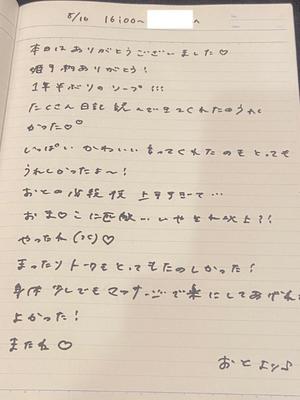 8/16 16:00〜 へ
本日はありがとうございました♡
1年半ぶりのソープ!!!
たくさん日記読んできてくれたのうれし
かった♡
いっぱい かわいい 言ってくれたのも とっても
うれしかったよ〜!
おとの 上手すぎて…
おま♡こに匹敵…いやそれ以上?!
やったね(笑)♡
まったりトークもとってもたのしかった!
身体 少しでもマッサージで楽にしてあげれて
よかった!
またね♡
おとより♪